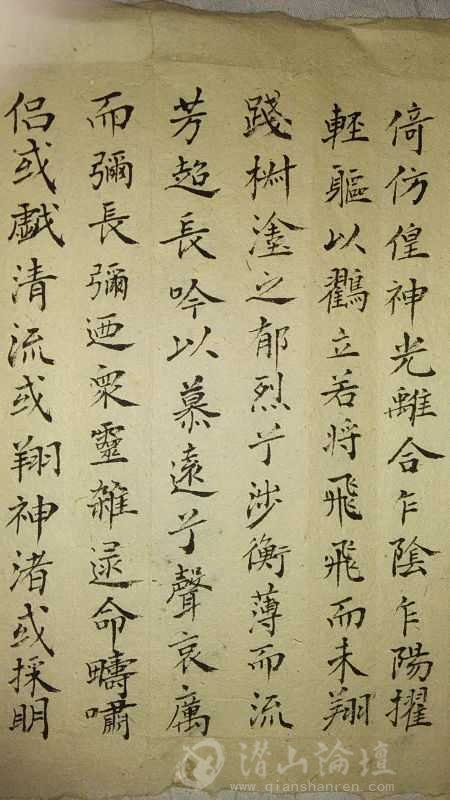 倚仿偟神光離合乍陰乍陽擢
輕軀以鸖立若将飛飛而未翔
踐椒塗之郁烈兮涉衡薄而流
芳超長吟以慕遠兮聲哀厲
而彌長彌迺衆靈雜遝命疇嘯
侣或戱清流或翔神渚或採明
潜山論壇
www.qianshanren.com